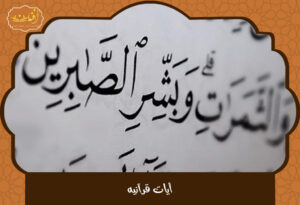 وَالثَّمَرَاتِ ۗ وَبَشِّرِ ٱلصَّـٰبِرِينَ
آيات قرآنيه